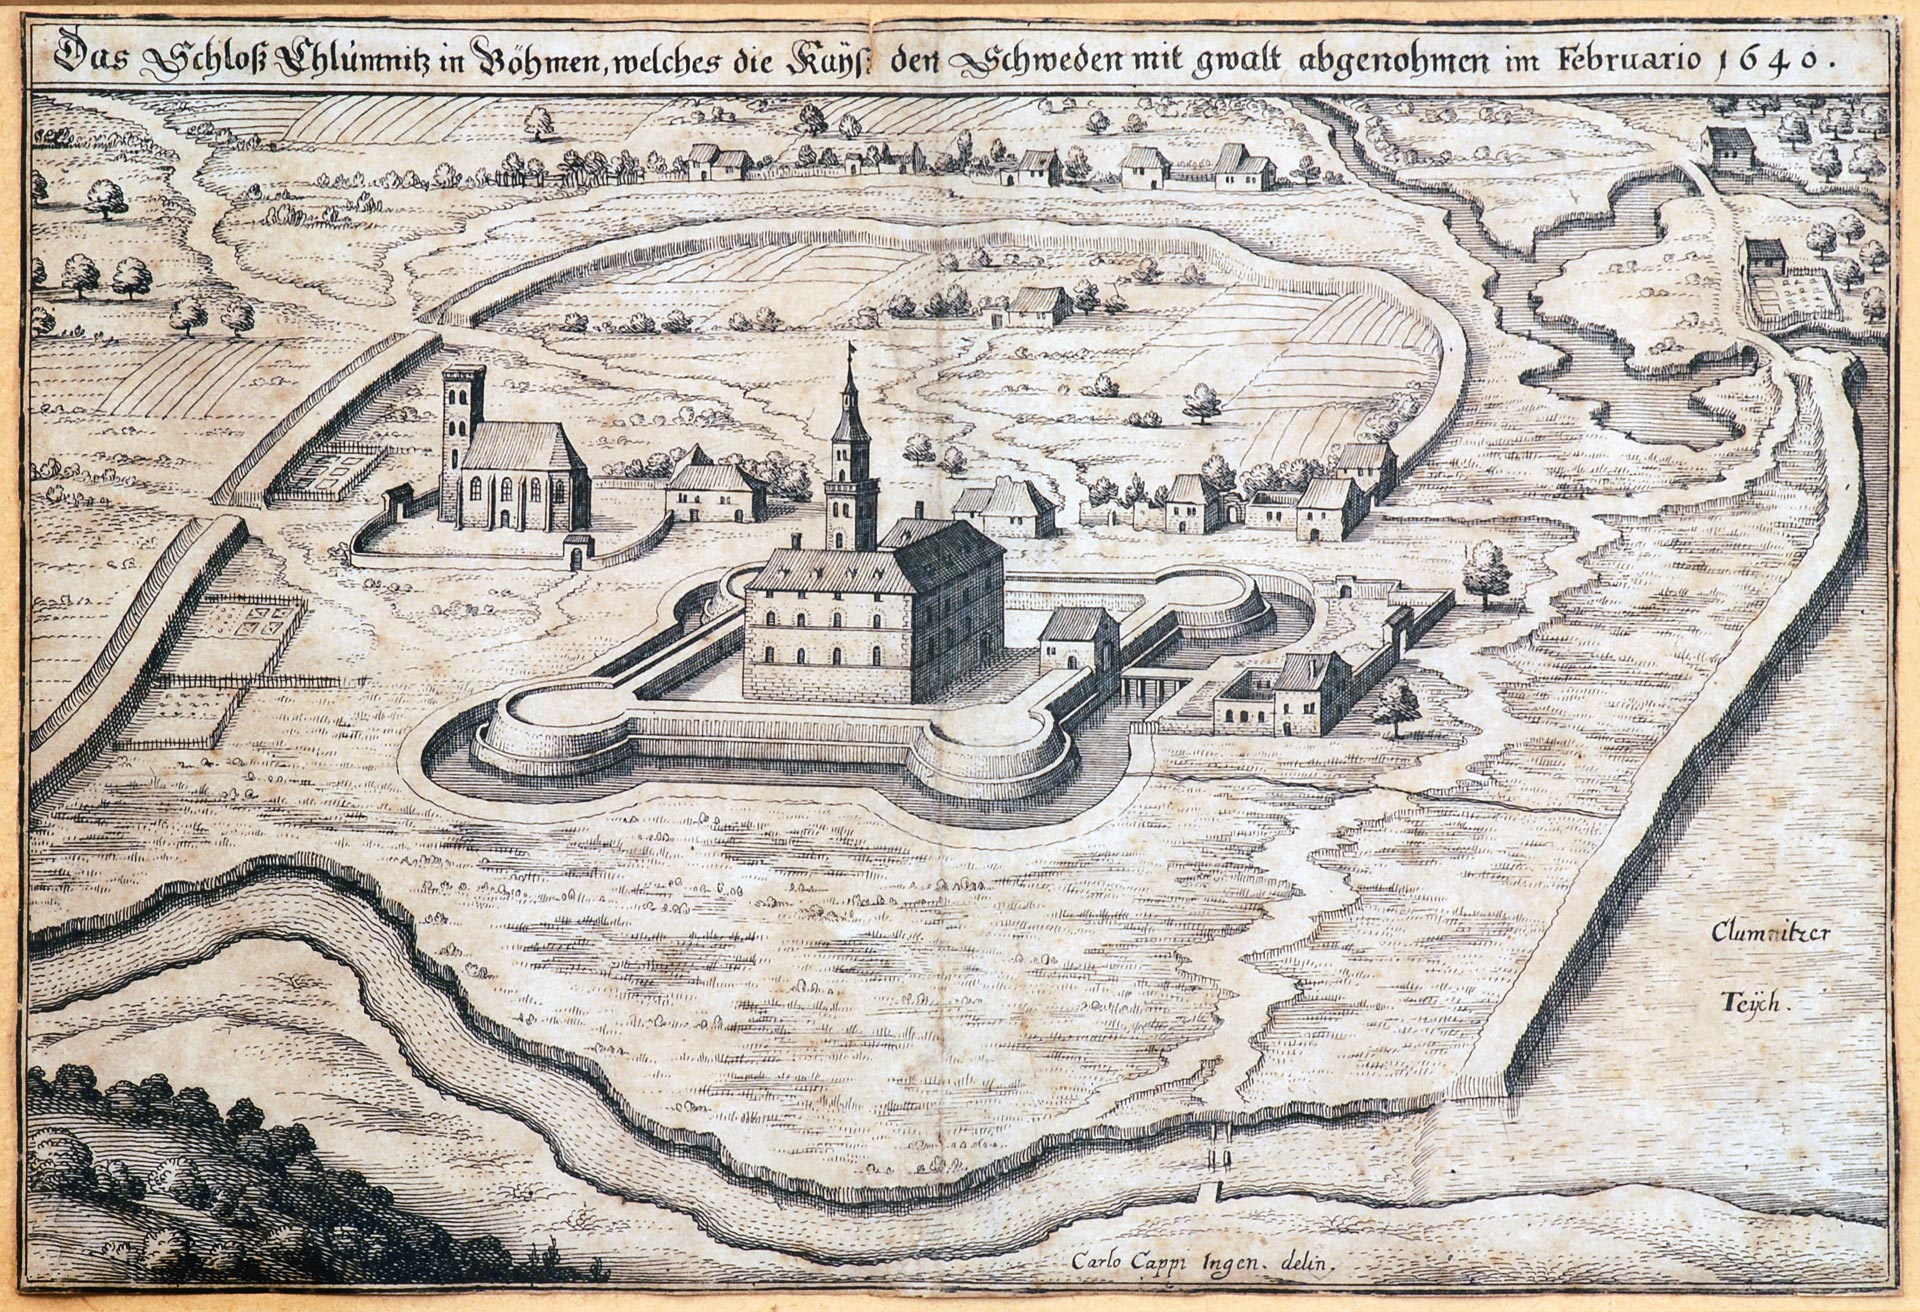 Das Schloß Chlumnitz in Böhmen, welches die Kaÿs: den Schweden mit gwalt abgenohmen im Februario 1640.
Clumnitzer
Teÿch.
Carlo Cappi Ingen. delin.